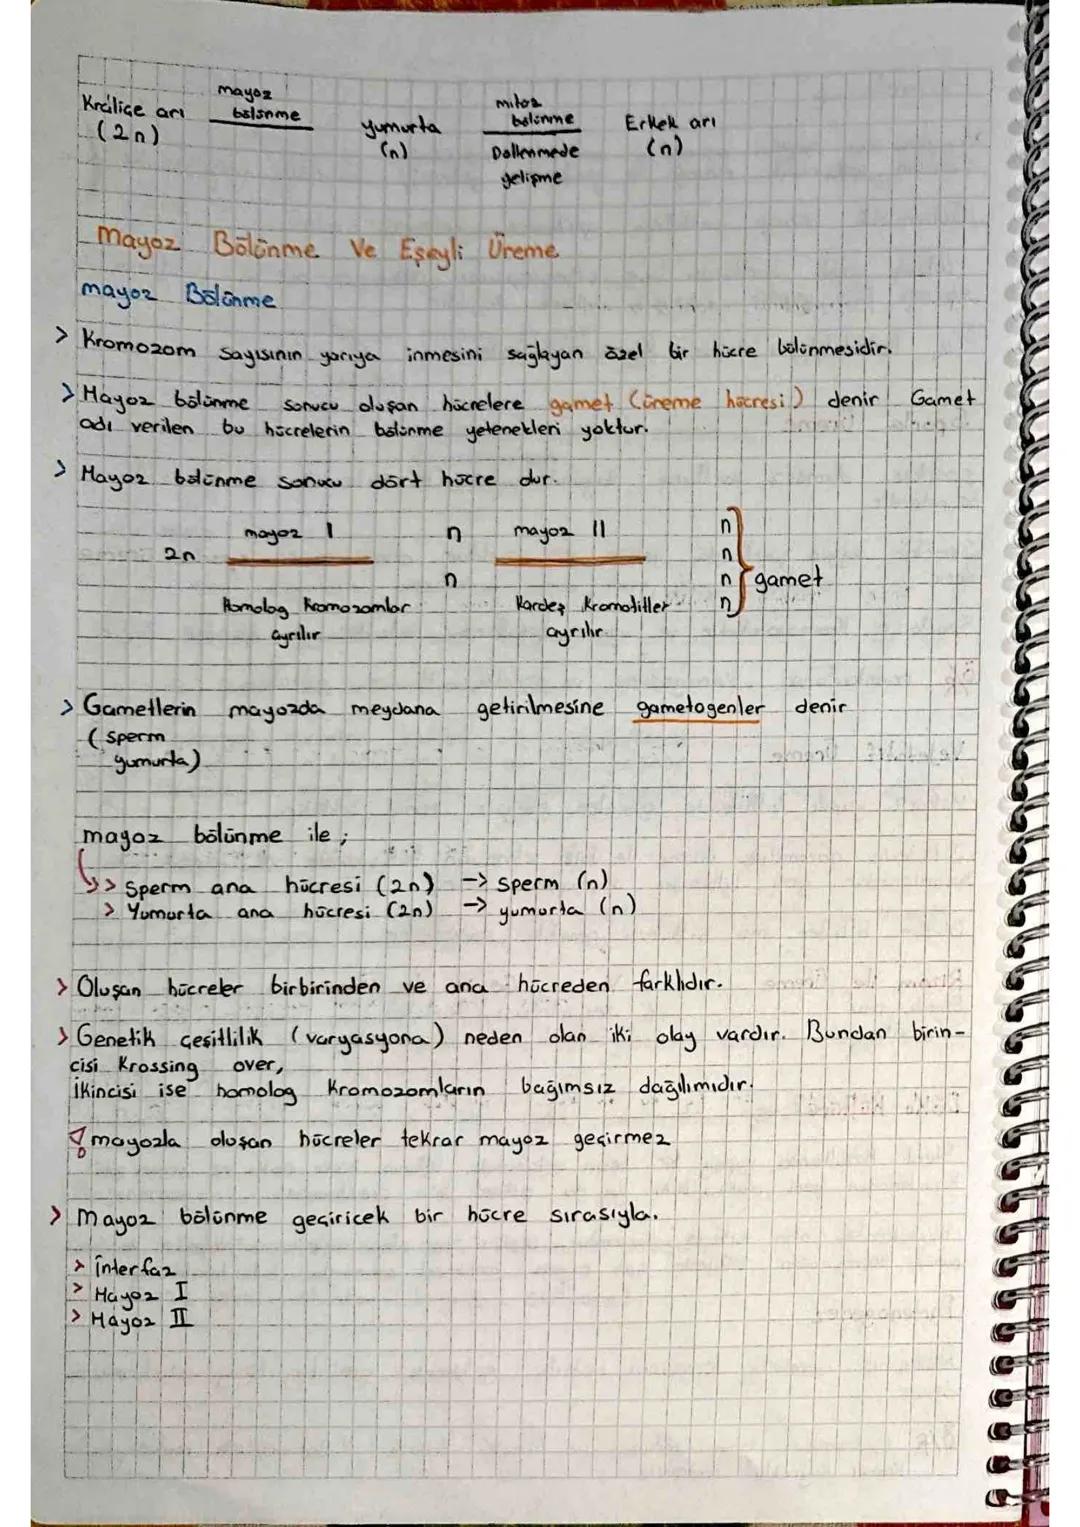 Kraliçe arı mayoz bölünme yumurta mitoz bölünme Erkek arı
(2n) (n) Döllenmede gelişme (n)
Mayoz Bölünme Ve Eşeyli Üreme
mayoz Bölünme
> Kromozom sayısının yarıya inmesini sağlayan özel bir hücre bölünmesidir.
> Mayoz bölünme sonucu oluşan hücrelere gamet (üreme hücresi) denir Gamet
adı verilen bu hücrelerin bölünme yetenekleri yoktur.
> Mayoz bölünme sonucu dört hücre dur.
2n mayoz I n mayoz II n
n
n n gamet
n
Homolog kromozomlar Kardeş kromatitler
ayrılır ayrılır
> Gametlerin mayozda meydana getirilmesine gametogenler denir
(sperm
yumurta)
mayoz bölünme ile ;
> Sperm ana hücresi (2n) -> sperm (n)
> Yumurta ana hücresi (2n) -> yumurta (n)
> Oluşan hücreler birbirinden ve ana hücreden farklıdır.
> Genetik çeşitlilik (varyasyona) neden olan iki olay vardır. Bundan birin-
cisi Krossing over,
İkincisi ise homolog kromozomların bağımsız dağılımıdır.
! mayozla oluşan hücreler tekrar mayoz geçirmez
> Mayoz bölünme geçiricek bir hücre sırasıyla.
> İnterfaz
> Mayoz I
> Mayoz II